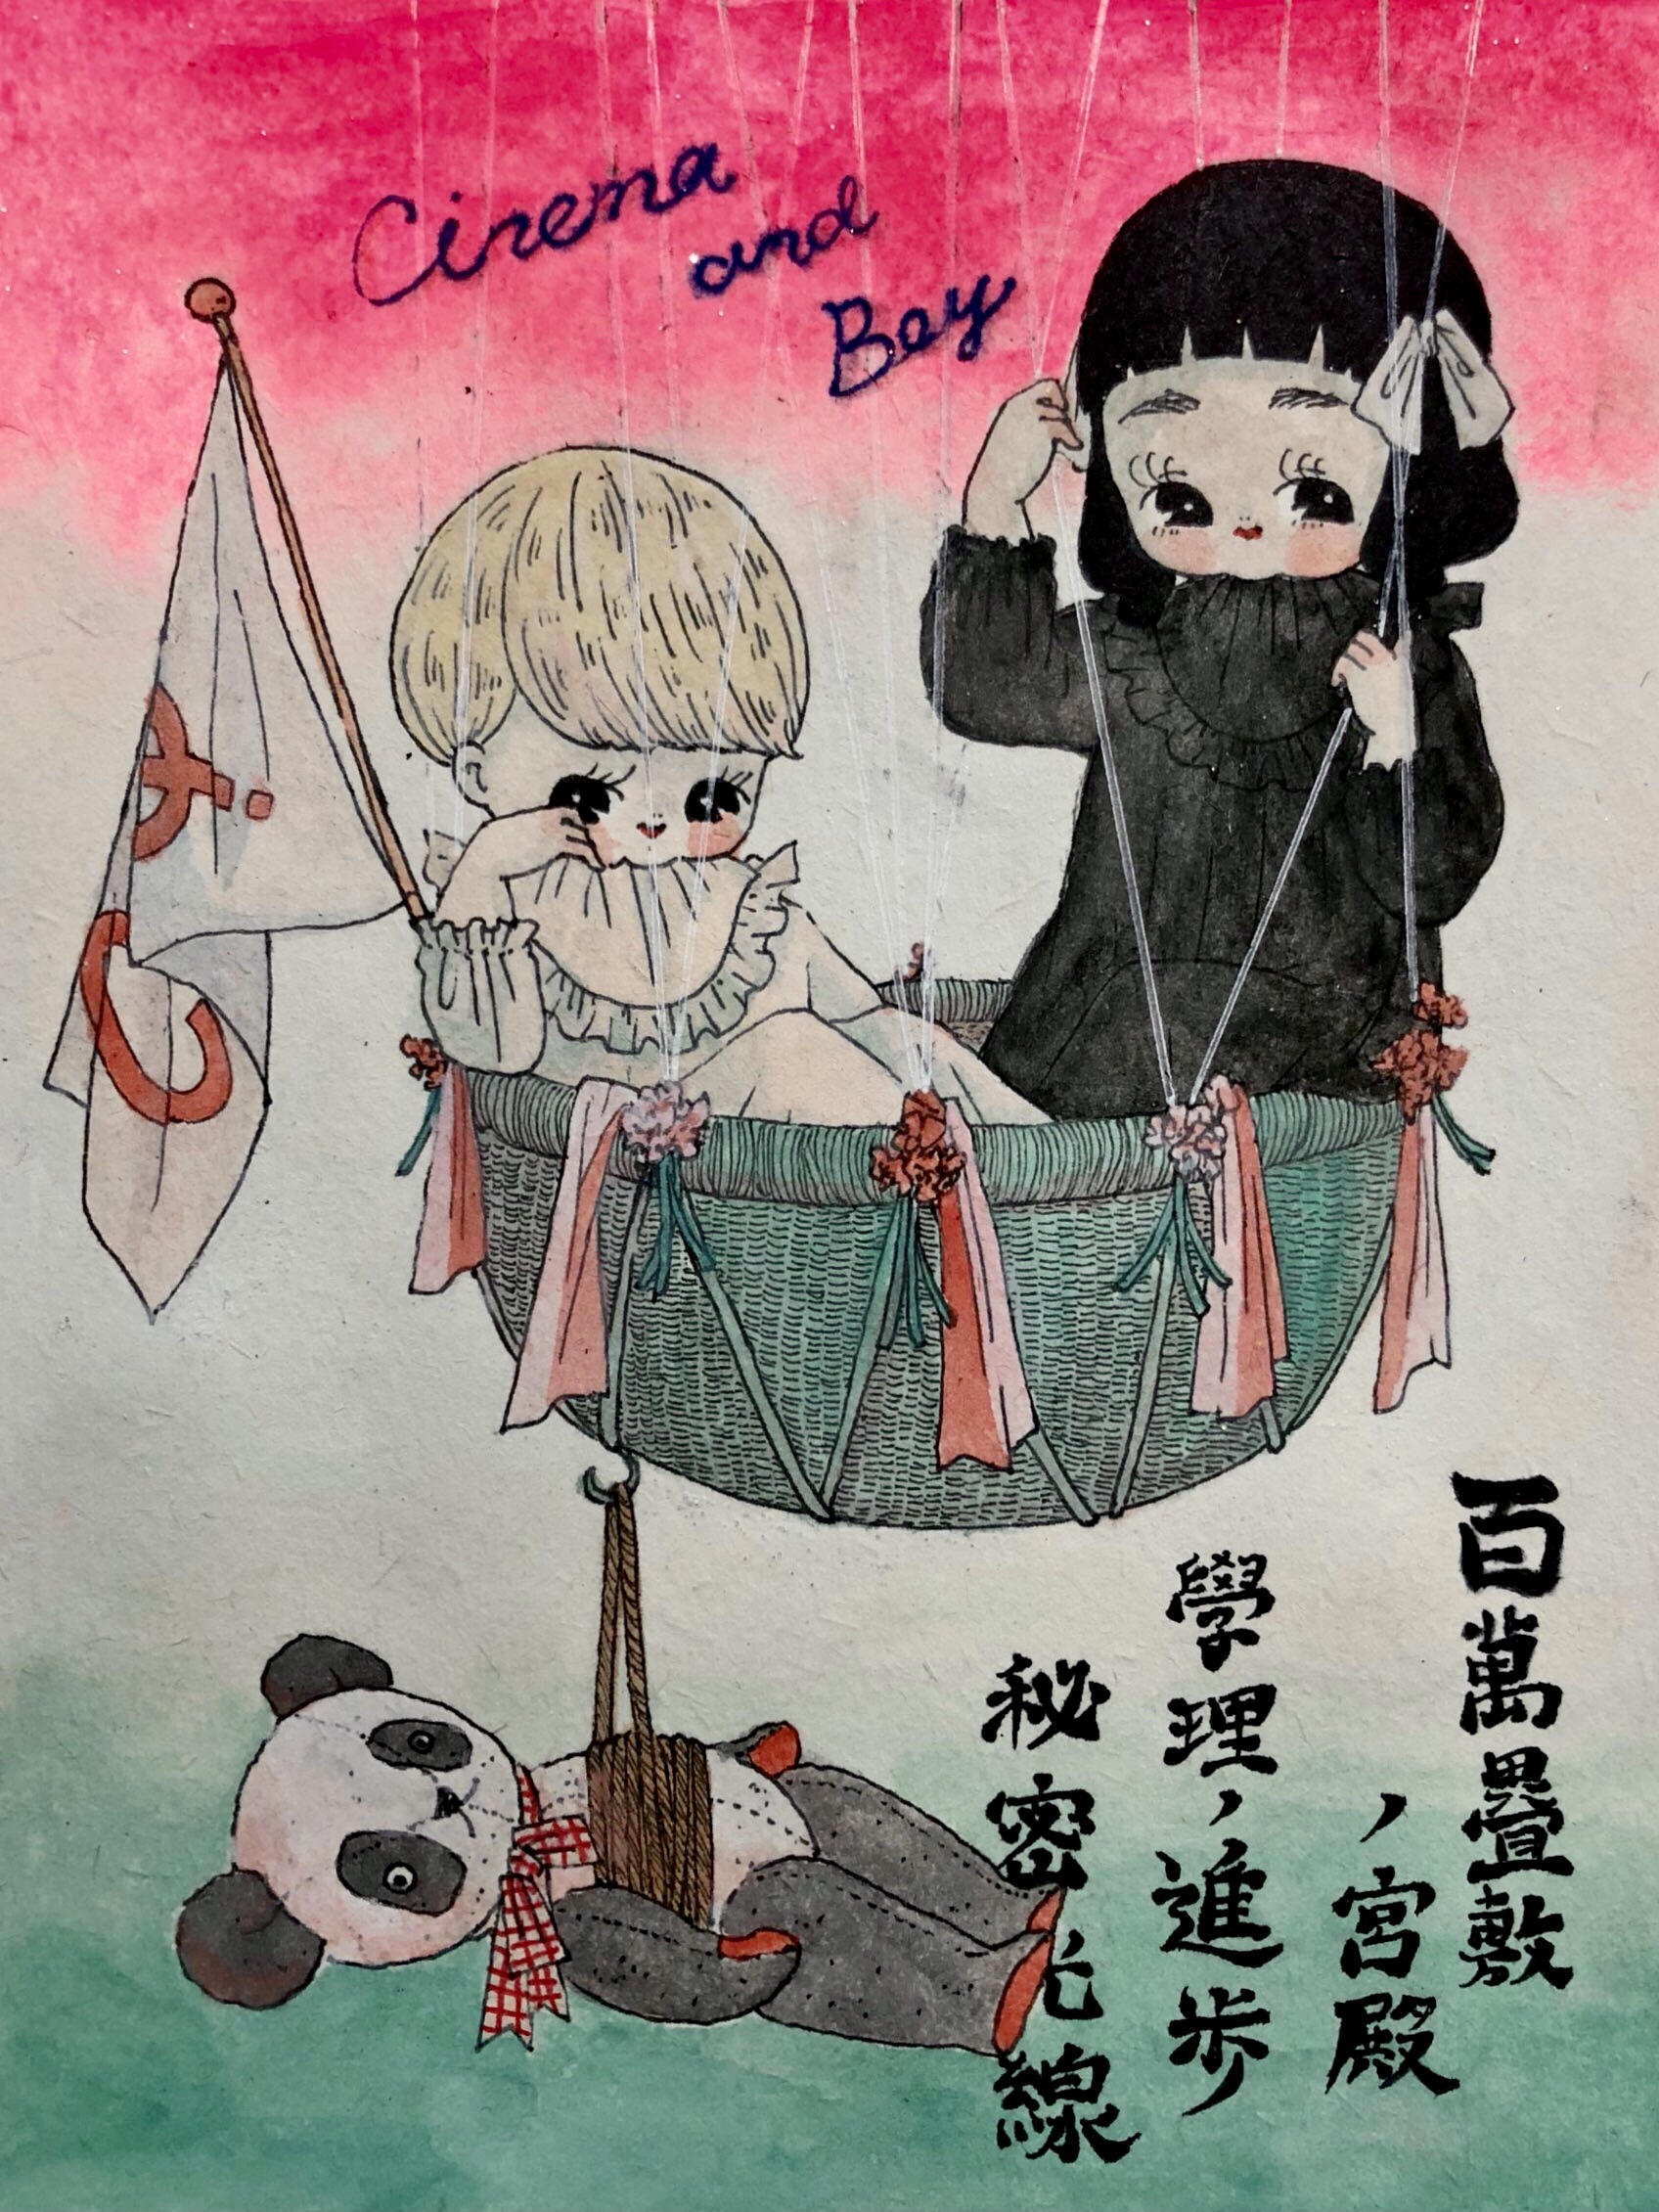 Cinema
and
Boy
百萬疊敷
ノ宮殿
學理ノ進歩
秘密光線